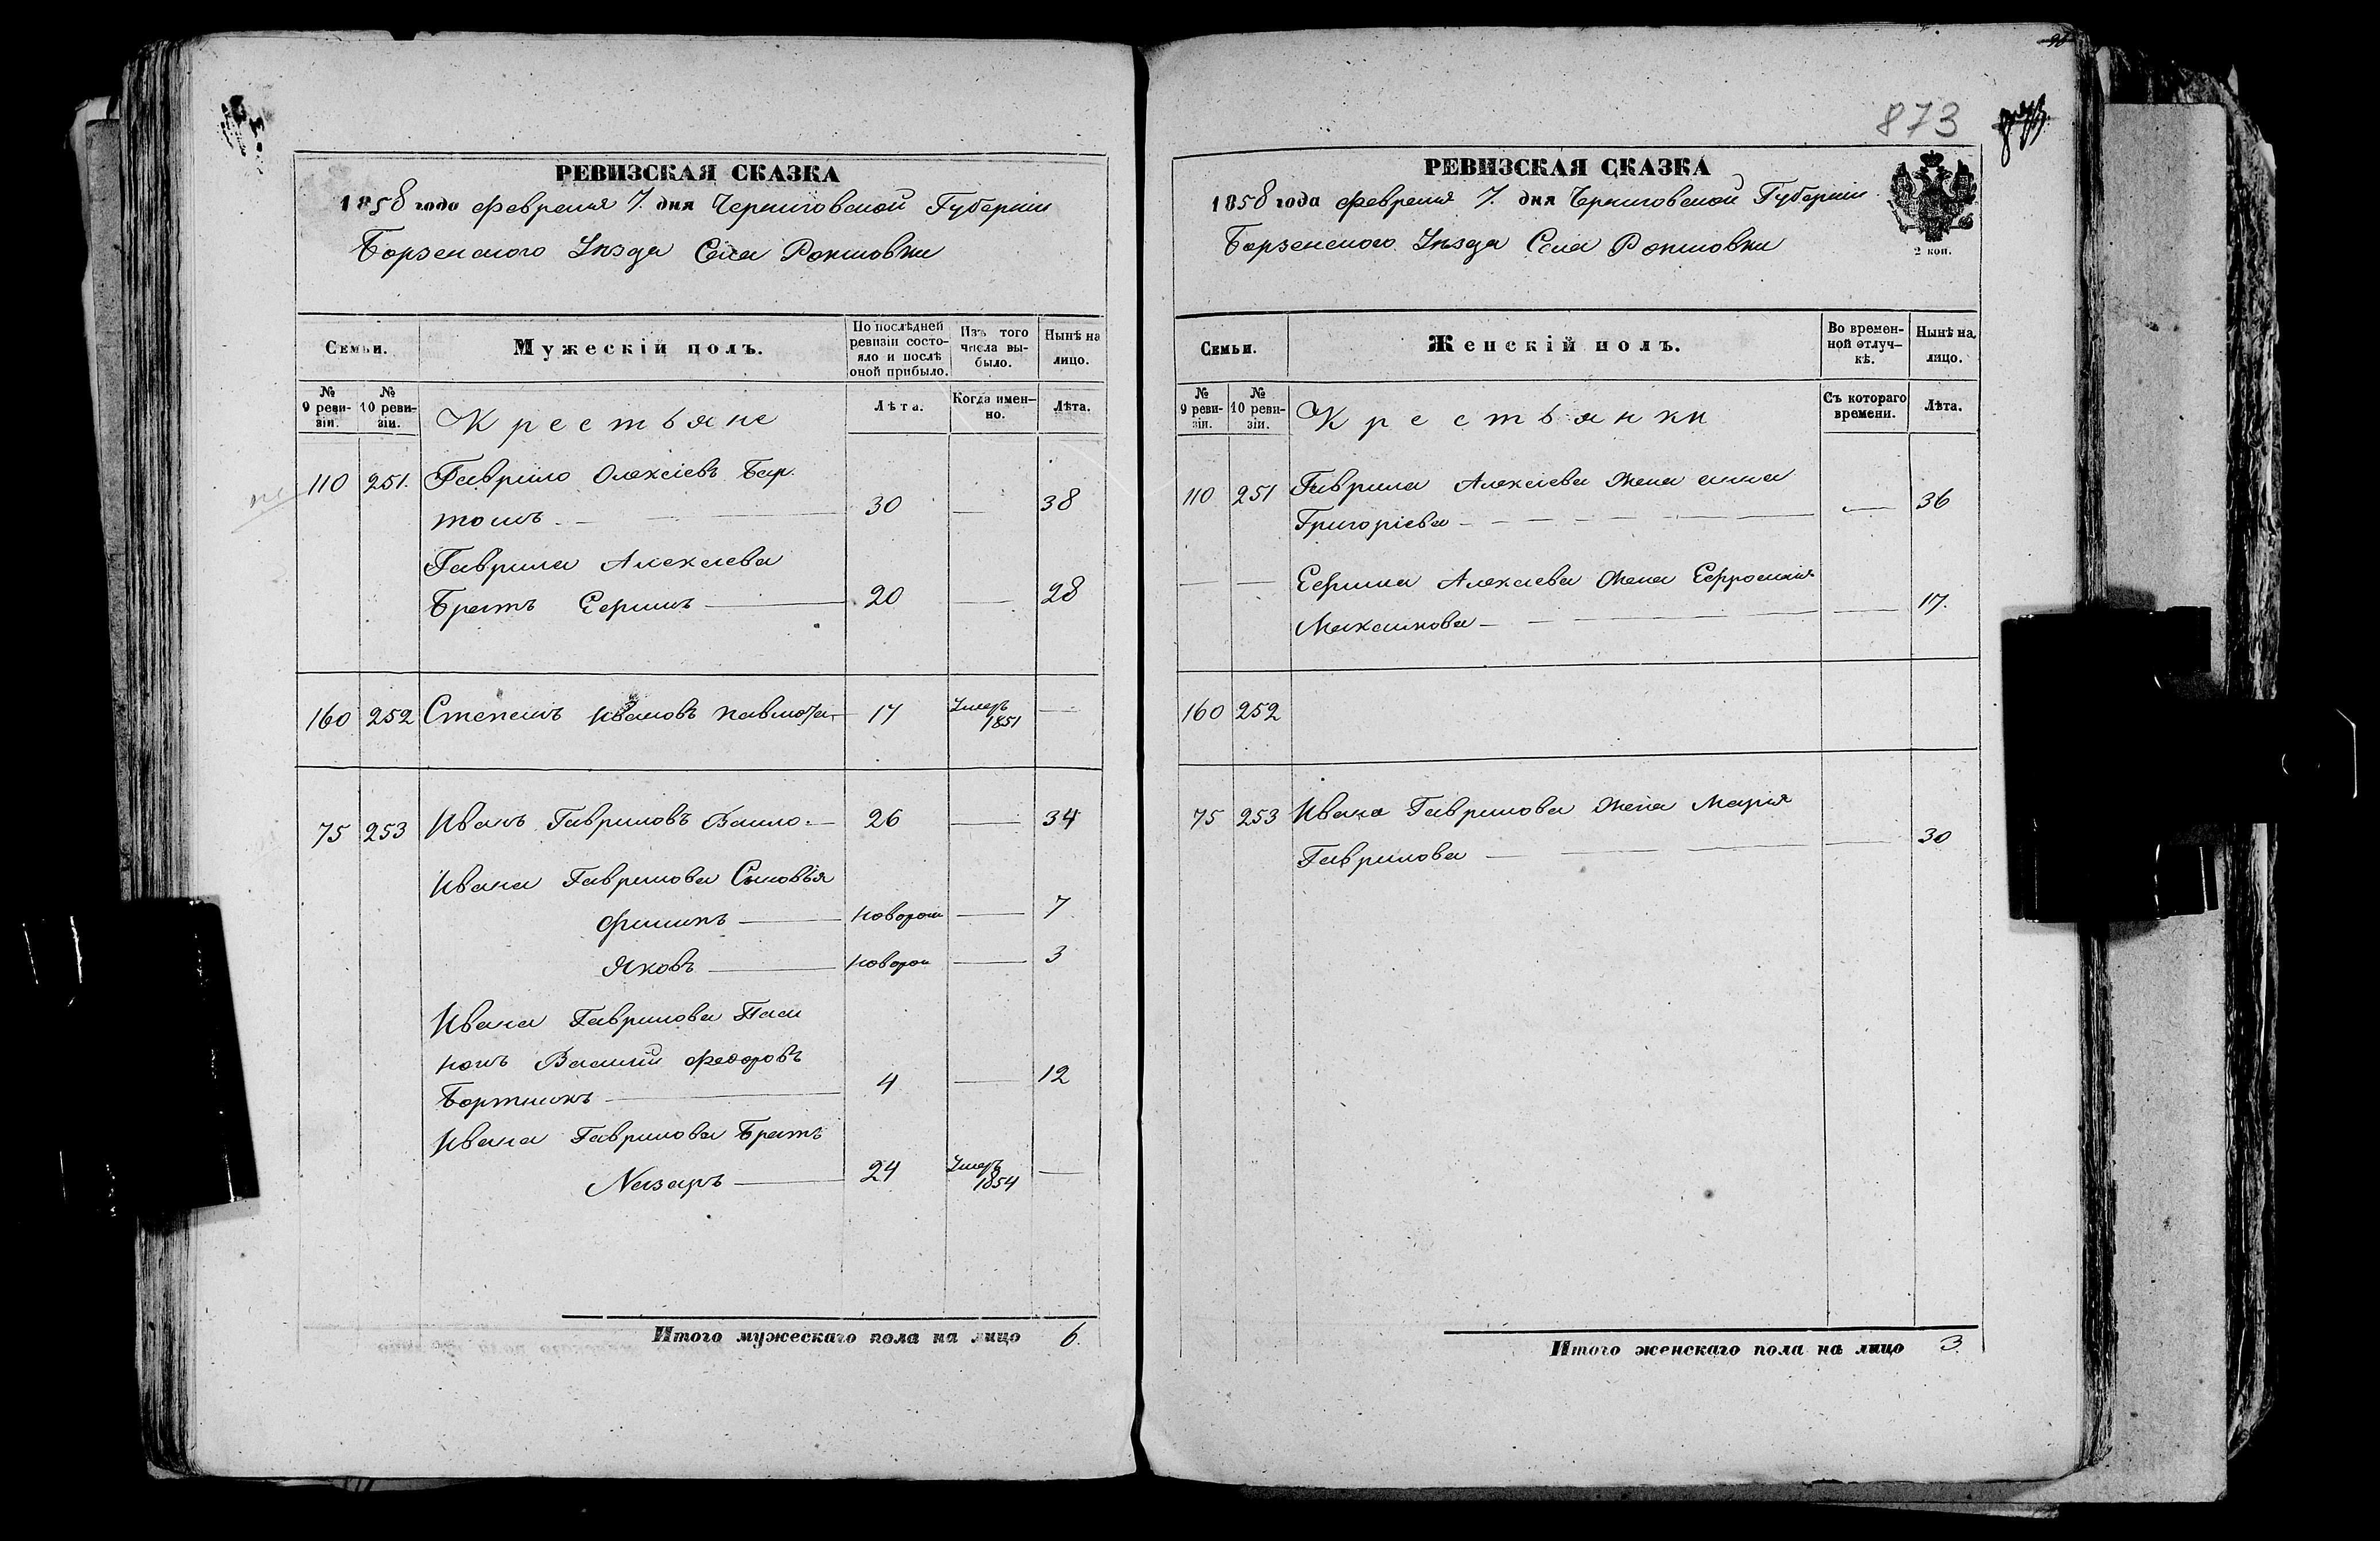 873
РЕВИЗСКАЯ СКАЗКА
1858 года Февраля 7. дня Черниговской Губерніи
Борзенского Уѣзда Села
Семьи.
Мужескій полъ.
По послѣдней ревизіи состояло и послѣ оной прибыло.
Изъ того числа выбыло.
Нынѣ на лицо.
№ 9 ревизіи.
№ 10 ревизіи.
Крестьяне
Лѣта.
Когда именно.
Лѣта.
110 251. Гаврило Олексіевъ
30 — 38
Гаврила Алексіева
Братъ Ефимъ — 20 — 28
160 252 Степанъ Ивановъ — 17 Умеръ 1851 —
75 253 Иванъ Гавриловъ — 26 — 34
Ивана Гаврилова Сыновья
Филипъ — новорож — 7
Яковъ — новорож — 3
Ивана Гаврилова Пасы
нокъ Василій Федоровъ
Бортникъ — 4 — 12
Ивана Гаврилова Братъ
Назаръ — 24 Умеръ 1854 —
Итого мужескаго пола на лицо 6.
РЕВИЗСКАЯ СКАЗКА
1858 года Февраля 7. дня Черниговской Губерніи
Борзенского Уѣзда Села
2 коп.
Семьи.
Женскій полъ.
Во временной отлучкѣ.
Нынѣ на лицо.
№ 9 ревизіи.
№ 10 ревизіи.
Крестьянки
Съ котораго времени.
Лѣта.
110 251 Гаврила Алексіева Жена Анна
Григоріева — — 36
— — Ефима Алексіева Жена Ефросинія
Максимова — — 17.
160 252
75 253 Ивана Гаврилова Жена Марія
Гаврилова — — 30
Итого женскаго пола на лицо 3.